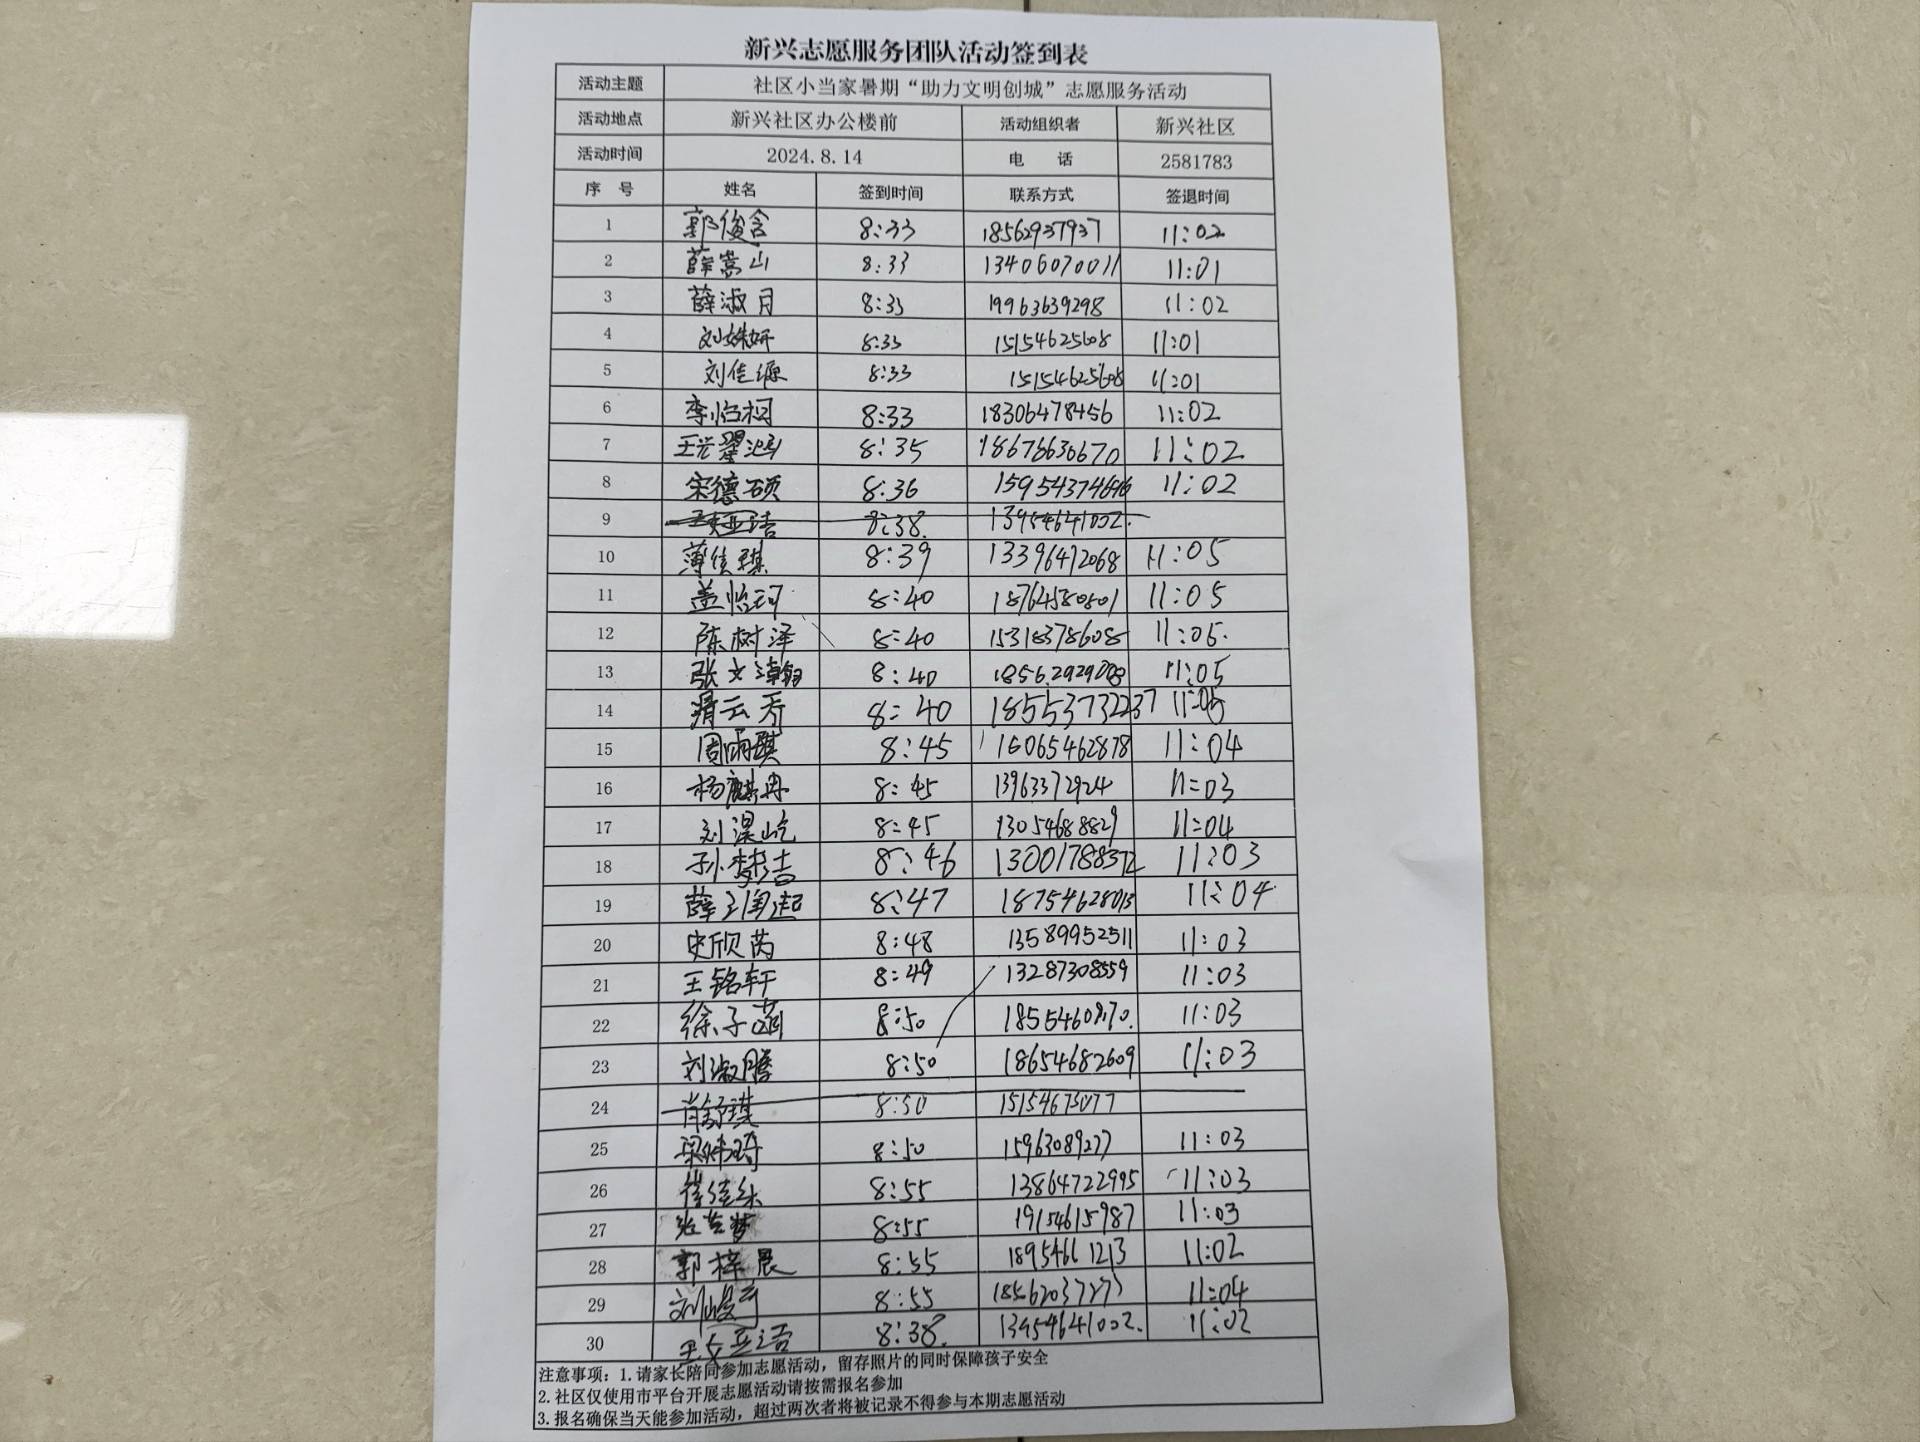 新兴志愿服务团队活动签到表
活动主题 社区小当家暑期“助力文明创城”志愿服务活动
活动地点 新兴社区办公楼前 活动组织者 新兴社区
活动时间 2024.8.14 电 话 2581783
序 号 姓名 签到时间 联系方式 签退时间
1 郭俊含 8:33 18562937937 11:02
2 薛嵩山 8:33 13406070011 11:01
3 薛淑月 8:33 19963639298 11:02
4 刘姝妍 8:33 15154625608 11:01
5 刘佳源 8:33 15154625608 11:01
6 李怡桐 8:33 18306478456 11:02
7 8:35 18678636670 11:02
8 宋德硕 8:36 11:02
9 8:38. 13954641002.
10 薄佳琪 8:39 13396412068 11:05
11 盖怡珂 8:40 18764580801 11:05
12 陈树泽 8:40 15318378608 11:05.
13 张文瀚 8:40 11:05
14 8:40 18553732237 11:05
15 周雨琪 8:45 16065462878 11:04
16 杨麒冉 8:45 13963372924 11:03
17 刘淏屹 8:45 13054688829 11:04
18 孙梦吉 8:46 13001788372 11:03
19 8:47 18754628013 11:04
20 史欣芮 8:48 13589952511 11:03
21 王铭轩 8:49 13287308559 11:03
22 徐子涵 8:50 11:03
23 刘淑腾 8:50 18654682609 11:03
24 肖舒琪 8:50 15154673077
25 梁炜琦 8:50 15963089277 11:03
26 8:55 13864722995 11:03
27 8:55 19154615987 11:03
28 郭梓晨 8:55 18954661213 11:02
29 8:55 18562037273 11:04
30 8:38. 13954641002. 11:02
注意事项：1.请家长陪同参加志愿活动，留存照片的同时保障孩子安全
2.社区仅使用市平台开展志愿活动请按需报名参加
3.报名确保当天能参加活动，超过两次者将被记录不得参与本期志愿活动